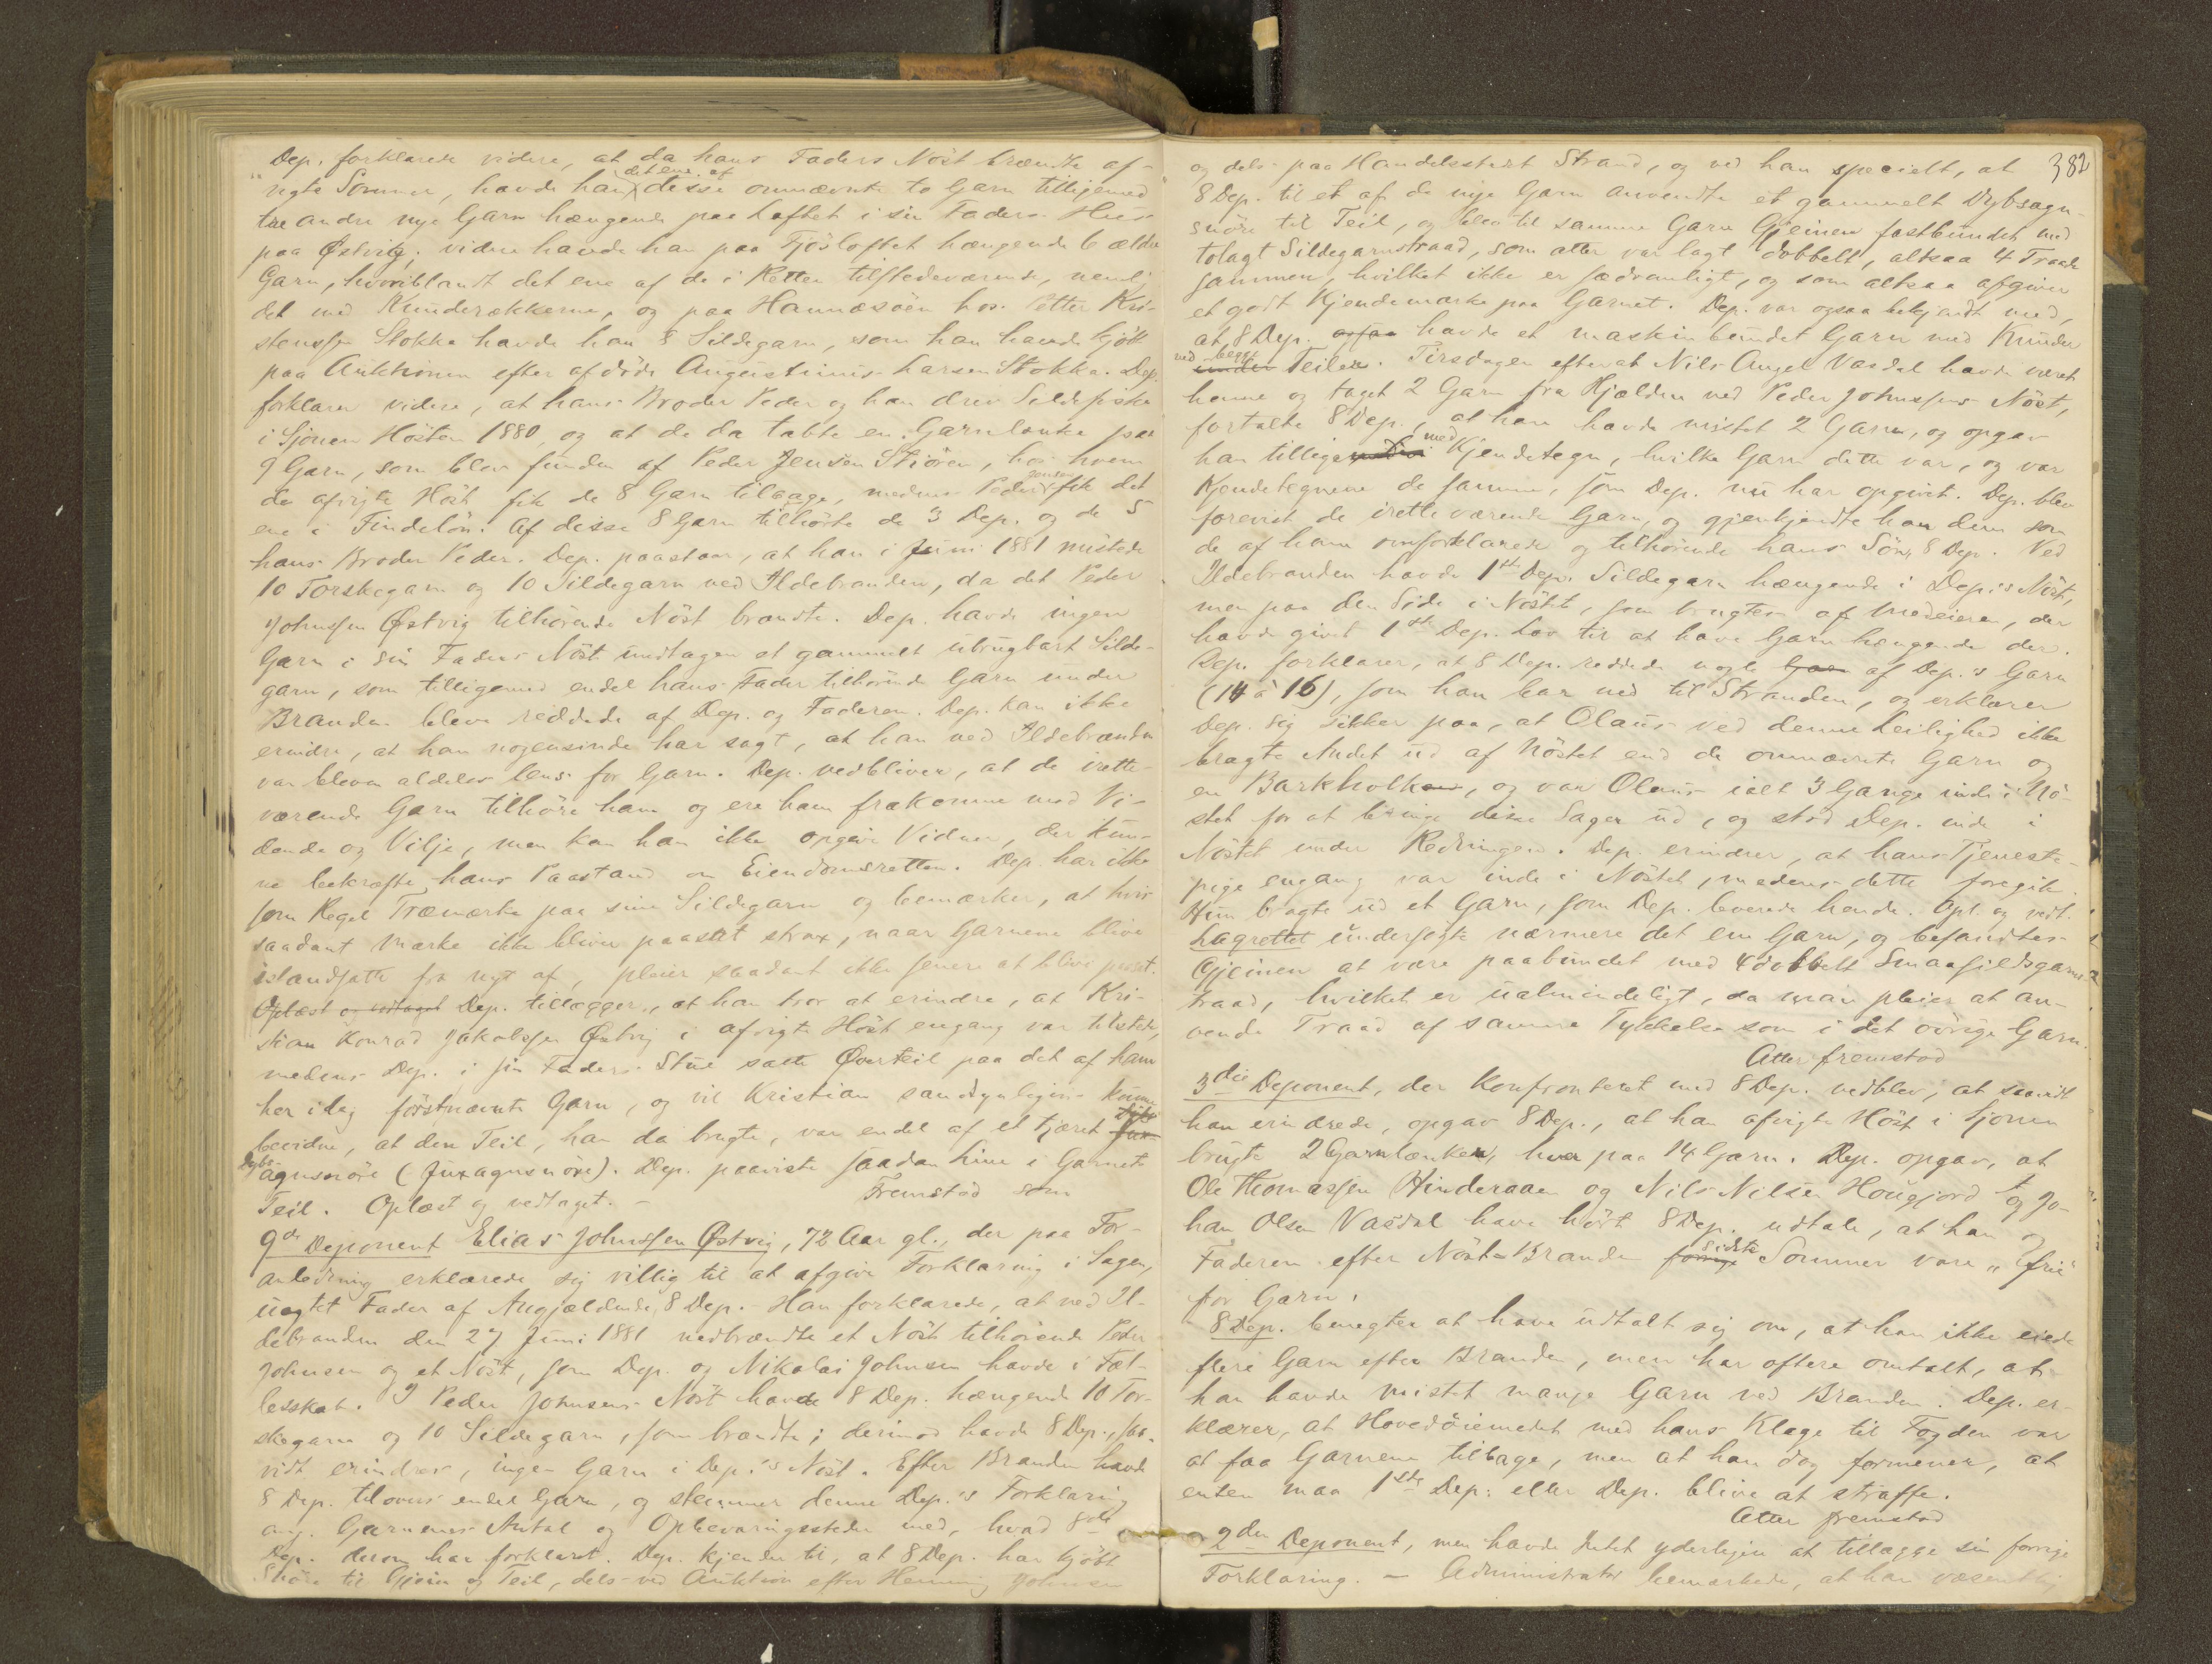 Dep. forklarede videre, at da hans Faders Nöst brændte af-
det ene af
vigte Sommer, havde han disse omnævnte to Garn tilligemed
tre andre nye Garn hængende paa Loftet i sin Faders Hus
paa Østvig; videre havde han paa Fjösloftet hængende 6 ældre
Garn, hvoriblandt det ene af de i Retten tilstedeværende, nemlig
det med Kunderækkerne, og paa Hannæsöen hos Petter Kri-
stenssen Stokka havde han 8 Sildegarn, som han havde kjöbt
paa Auktionen efter afdöde Augustinus Larsen Stokka. Dep.
forklarer videre, at hans Broder Peder og han drev Sildefiske
i Sjonen Hösten 1880, og at de da tabte en Garnlænke paa
9 Garn, som blev funden af Peder Jensen Stiören, hos hvem
Jensen
de afvigte Höst fik de 8 Garn tilbage, medens Peder fik det
ene i Findelön. Af disse 8 Garn tilhörte de 3 Dep. og de 5
hans Broder Peder. Dep. paastaar, at han i Juni 1881 mistede
10 Torskegarn og 10 Sildegarn ved Ildebranden, da det Peder
Johnssen Østvig tilhörende Nöst brændte. Dep. havde ingen
Garn i sin Faders Nöst undtagen et gammelt ubrugbart Silde-
garn, som tilligemed endel hans Fader tilhörende Garn under
Branden bleve reddede af Dep. og Faderen. Dep. kan ikke
erindre, at han nogensinde har sagt, at han ved Ildebranden
var bleven aldeles læns for Garn. Dep. vedbliver, at de irette-
værende Garn tilhöre ham og ere ham frakomne mod Vi-
dende og Vilje, men kan han ikke opgive Vidner, der kun-
ne bekræfte hans Paastand om Eiendomsretten. Dep. har ikke
som Regel Træmærke paa sine Sildegarn og bemærker, at hvis
saadant Mærke ikke bliver paasat strax, naar Garnene blive
istandsatte fra nyt af, pleier saadant ikke senere at blive paasat.
Oplæst og vedtaget Dep. tillægger, at han tror at erindre, at Kri-
stian Konrad Jakobssen Østvig i afvigte Höst engang var tilstede,
medens Dep. i sin Faders Stue satte Overteil paa det af ham
her idag förstnævnte Garn, og vil Kristian sandsynligvis kunne
bevidne, at den Teil, han da brugte, var endel af et tjæret
Dybs-
agnsnöre (Juxagnsnöre). Dep. paaviste saadan Line i Garnets
Teil. Oplæst og vedtaget. – Fremstod som
9de Deponent Elias Johnssen Østvig, 72 Aar gl., der paa For-
anledning erklærede sig villig til at afgive Forklaring i Sagen,
uagtet Fader af Angjældende, 8 Dep. Han forklarede, at ved Il-
debranden den 27 Juni 1881 nedbrændte et Nöst tilhörende Peder
Johnsen og et Nöst, som Dep. og Nikolai Johnsen havde i Fæl-
lesskab. I Peder Johnsens Nöst havde 8 Dep. hængende 10 Tor-
skegarn og 10 Sildegarn, som brændte; derimod havde 8 Dep., saa-
vidt erindres, ingen Garn i Dep.'s Nöst. Efter Branden havde
8 Dep. tilovers endel Garn, og stemmer denne Dep.'s Forklaring
ang. Garnenes Antal og Opbevaringssteder med, hvad 8de
Dep. derom har forklaret. Dep. kjender til, at 8 Dep. har kjöbt
Snöre til Gjein og Teil, dels ved Auktion efter Henning Johnsen
382
og dels paa Handelsstedet Strand, og ved han specielt, at
8 Dep. til et af de nye Garn anvendte et gammelt Dybsagn-
snöre til Teil, og blev til samme Garn Gjeinen fastbundet med
tolagt Sildegarnstraad, som atter var lagt dobbelt, altsaa 4 Traade
sammen, hvilket ikke er sædvanligt, og som altsaa afgiver
et godt Kjendemærke paa Garnet. Dep. var ogsaa bekjendt med,
at 8 Dep. ogsaa havde et maskinbundet Garn med Kunder
ved begge
under Teilene. Tirsdagen efterat Nils Angel Vasdal havde været
henne og taget 2 Garn fra Hjælden ved Peder Johnssens Nöst,
fortalte 8 Dep., at han havde mistet 2 Garn, og opgav
med
han tillige Kjendetegn, hvilke Garn dette var, og var
Kjendetegnene de samme, som Dep. nu har opgivet. Dep. blev
forevist de iretteværende Garn, og gjenkjendte han dem som
de af ham omforklarede og tilhörende hans Sön, 8 Dep. Ved
Ildebranden havde 1ste Dep. Sildegarn hængende i Dep.'s Nöst,
men paa den Side i Nöstet, som brugtes af Medeieren, der
havde givet 1ste Dep. Lov til at have Garn hængende der.
Dep. forklarer, at 8 Dep. reddede nogle Garn af Dep.'s Garn
(14 à 16), som han bar ned til Stranden, og erklærer
Dep. sig sikker paa, at Olaus ved denne Leilighed ikke
bragte Andet ud af Nöstet end de omnævnte Garn og
en Barkholk, og var Olaus ialt 3 Gange inde i Nö-
stet for at bringe disse Sager ud, og stod Dep. inde i
Nöstet under Redningen. Dep. erindrer, at hans Tjeneste-
pige engang var inde i Nöstet, medens dette foregik.
Hun bragte ud et Garn, som Dep. leverede hende. Opl. og vedt.
Lagrettet undersögte nærmere det ene Garn, og befandtes
Gjeinen at være paabundet med 4 dobbelt Smaasildgarns-
traad, hvilket er ualmindeligt, da man pleier at an-
vende Traad af samme Tykkelse som i det övrige Garn.
Atter fremstod
3die Deponent, der konfronteret med 8 Dep. vedblev, at saavidt
han erindrede, opgav 8 Dep., at han afvigte Höst i Sjonen
brugte 2 Garnlænker, hver paa 14 Garn. Dep. opgav, at
Ole Thomassen Hinderaaen og Nils Nilsen Hougjord og Jo-
han Olsen Vasdal have hört 8 Dep. udtale, at han og
sidste
Faderen efter Nöst-Branden forrige Sommer vare „frie"
for Garn.
8 Dep. benegter at have udtalt sig om, at han ikke eiede
flere Garn efter Branden, men har oftere omtalt, at
han havde mistet mange Garn ved Branden. Dep. er-
klærer, at Hovedöiemedet med hans Klage til Fogden var
at faa Garnene tilbage, men at han dog formener, at
enten maa 1ste Dep. eller Dep. blive at straffe.
Atter fremstod
2den Deponent, men havde Intet yderligere at tillægge sin forrige
Forklaring. – Administrator bemærkede, at han væsentlig